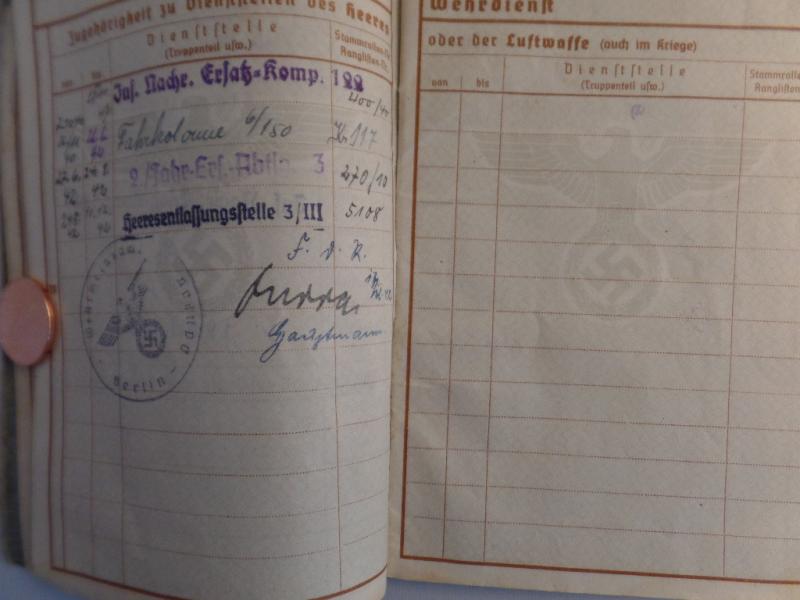 Zugehörigkeit zu Dienststellen des Heeres
von
Dienststelle
(Truppenteil usw.)
Stammrollen-Nr.
Ranglisten-Nr.
Inf. Nachr. Ersatz-Komp. 122
400/40
Fahrkolonne 6/150
117
2./Fahr-Ers.-Abtlg. 3
270/10
22.6. 24.8.
42 42
Heeresentlassungsstelle 3/III
5108
F. d. R.
Hauptmann
Berlin
Wehrdienst
oder der Luftwaffe (auch im Kriege)
von
bis
Dienststelle
(Truppenteil usw.)
Stammrollen
Ranglisten